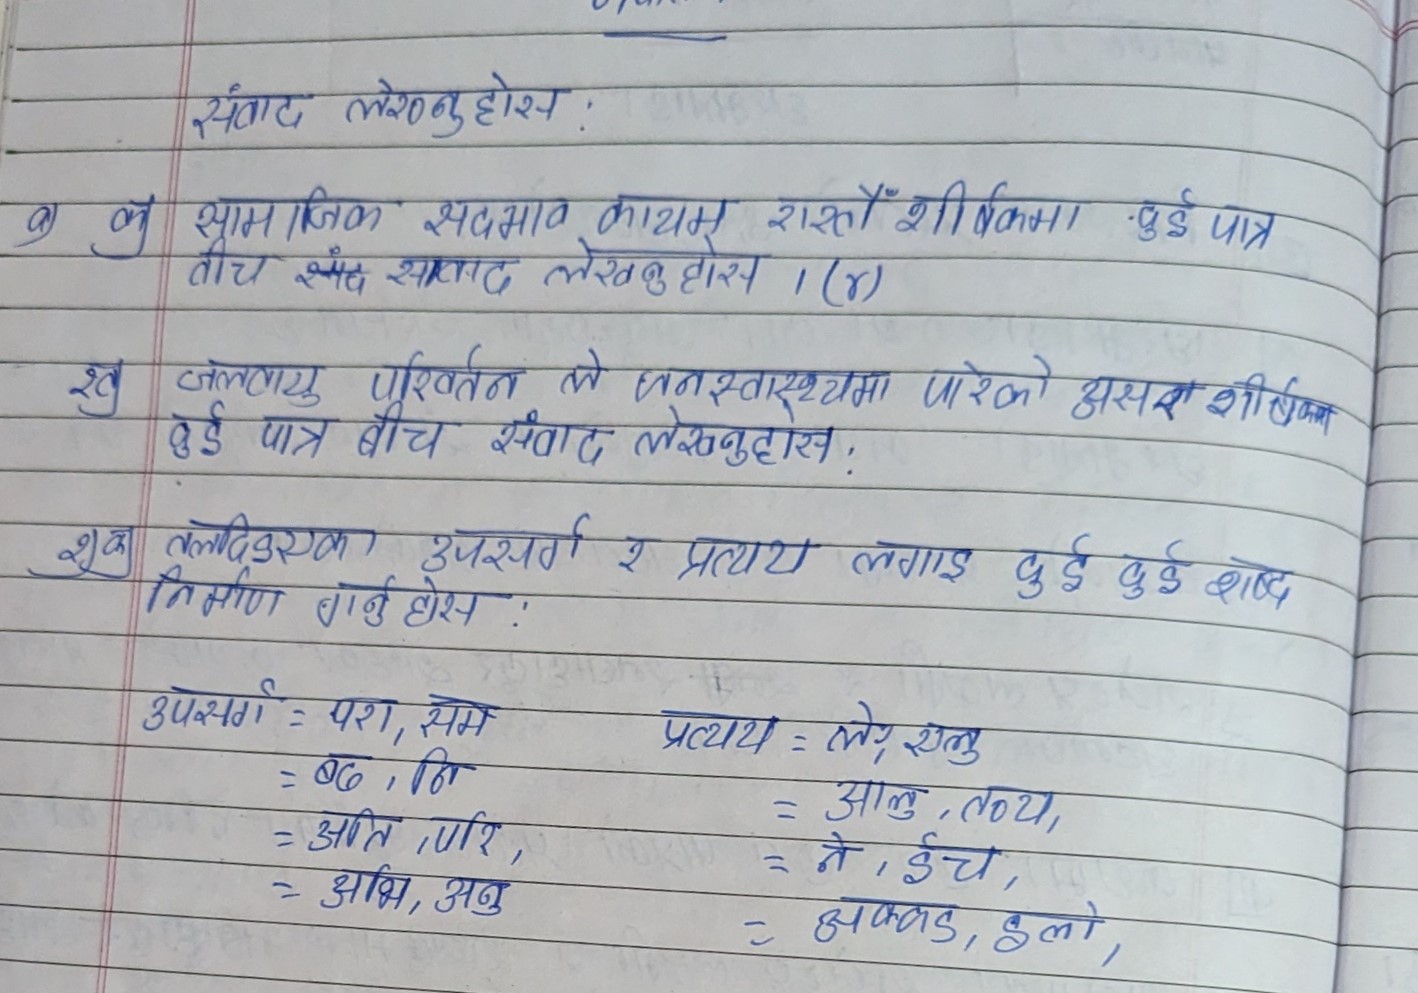 संवाद लेख्नुहोस :
क) सामाजिक सदभाव कायम राखौँ शीर्षकमा दुई पात्र
बीच सवाद लेख्नुहोस । (४)
ख) जलवायु परिवर्तन ले जनस्वास्थ्यमा पारेको असर शीर्षकमा
दुई पात्र बीच संवाद लेख्नुहोस :
तलदिइएका उपसर्ग र प्रत्यय लगाइ दुई दुई शब्द
निर्माण गर्नुहोस :
उपसर्ग = परा, सम प्रत्यय = ले, एलु
= बद, नि = आलु, तव्य,
= अति, परि, = ने, ईय,
= अभि, अनु = अक्कड, इलो,